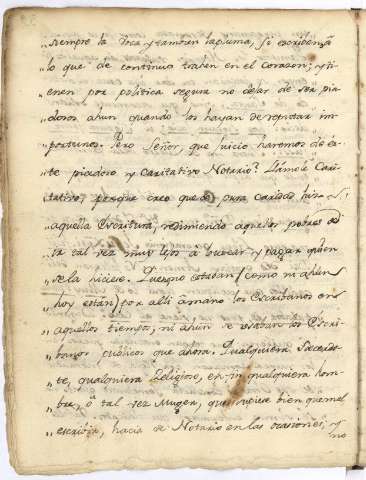 siempre la boca, y tambien la pluma, si escriben, a
„ lo que de continuo trahen en el Corazon; y ti-
„ enen por politica segura no dejar de ser pia-
„ dosos ahun quando los hayan de reputar im-
„ portunos. Pero Señor, que juicio haremos de es-
„ te piadoso y Caritativo Notario? Llámole Cari-
„ tativo, porque creo que de pura caridad hizo
„ aquella Escritura, redimiendo aquellos pobres de
„ ir tal vez muy lejos a buscar y pagar quien
„ se la hiciese. Porque estaban (como ni ahun
„ hoy estan) por alli a mano los Escribanos en
„ aquellos tiempos, ni ahun se usaban los Escri-
„ banos publicos que ahora. Qualquiera Sacerdo-
„ te, qualquiera Religioso, en fin qualquiera hom-
„ bre, ô tal vez Muger, que supiese bien que mal
„ escribir, hacia de Notario en las ocasiones; y
no